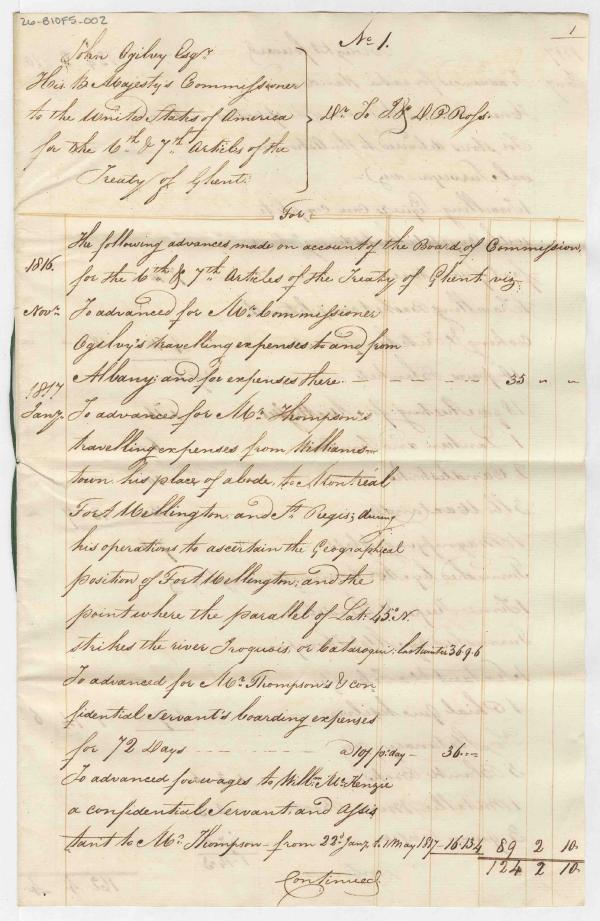 26-B10F5-002
1
No 1.
John Ogilvy Esqr
His B Majesty's Commissioner
to the United States of America
for the 6th & 7th Articles of the
Treaty of Ghent.
Dr To J & D.P. Ross.
For
The following advances made on account of the Board of Commission,
1816. for the 6th & 7th Articles of the Treaty of Ghent viz.
Novr To advanced for Mr Commissioner
Ogilvy's travelling expenses to and from
Albany; and for expenses there. — — — — 35 " "
1817
Jany. To advanced for Mr Thompson's
travelling expenses from Williams-
town his place of abode, to Montréal
Fort Wellington, and St Regis; during
his operations to ascertain the Geographical
position of Fort Wellington; and the
point where the parallel of Lat: 45° N.
strikes the river Iroquois, or Cataroqui; last winter 36 9 6
To advanced for Mr Thompson's & con-
fidential servant's boarding expenses
for 72 Days — — — a 10/ pr day — 36 " "
To advanced for wages to Willm McKenzie
a confidential Servant, and Assis
tant to Mr Thompson — from 22d Jany. to 1 May 1817 — 16 13 4 89 2 10
124 2 10
Continued